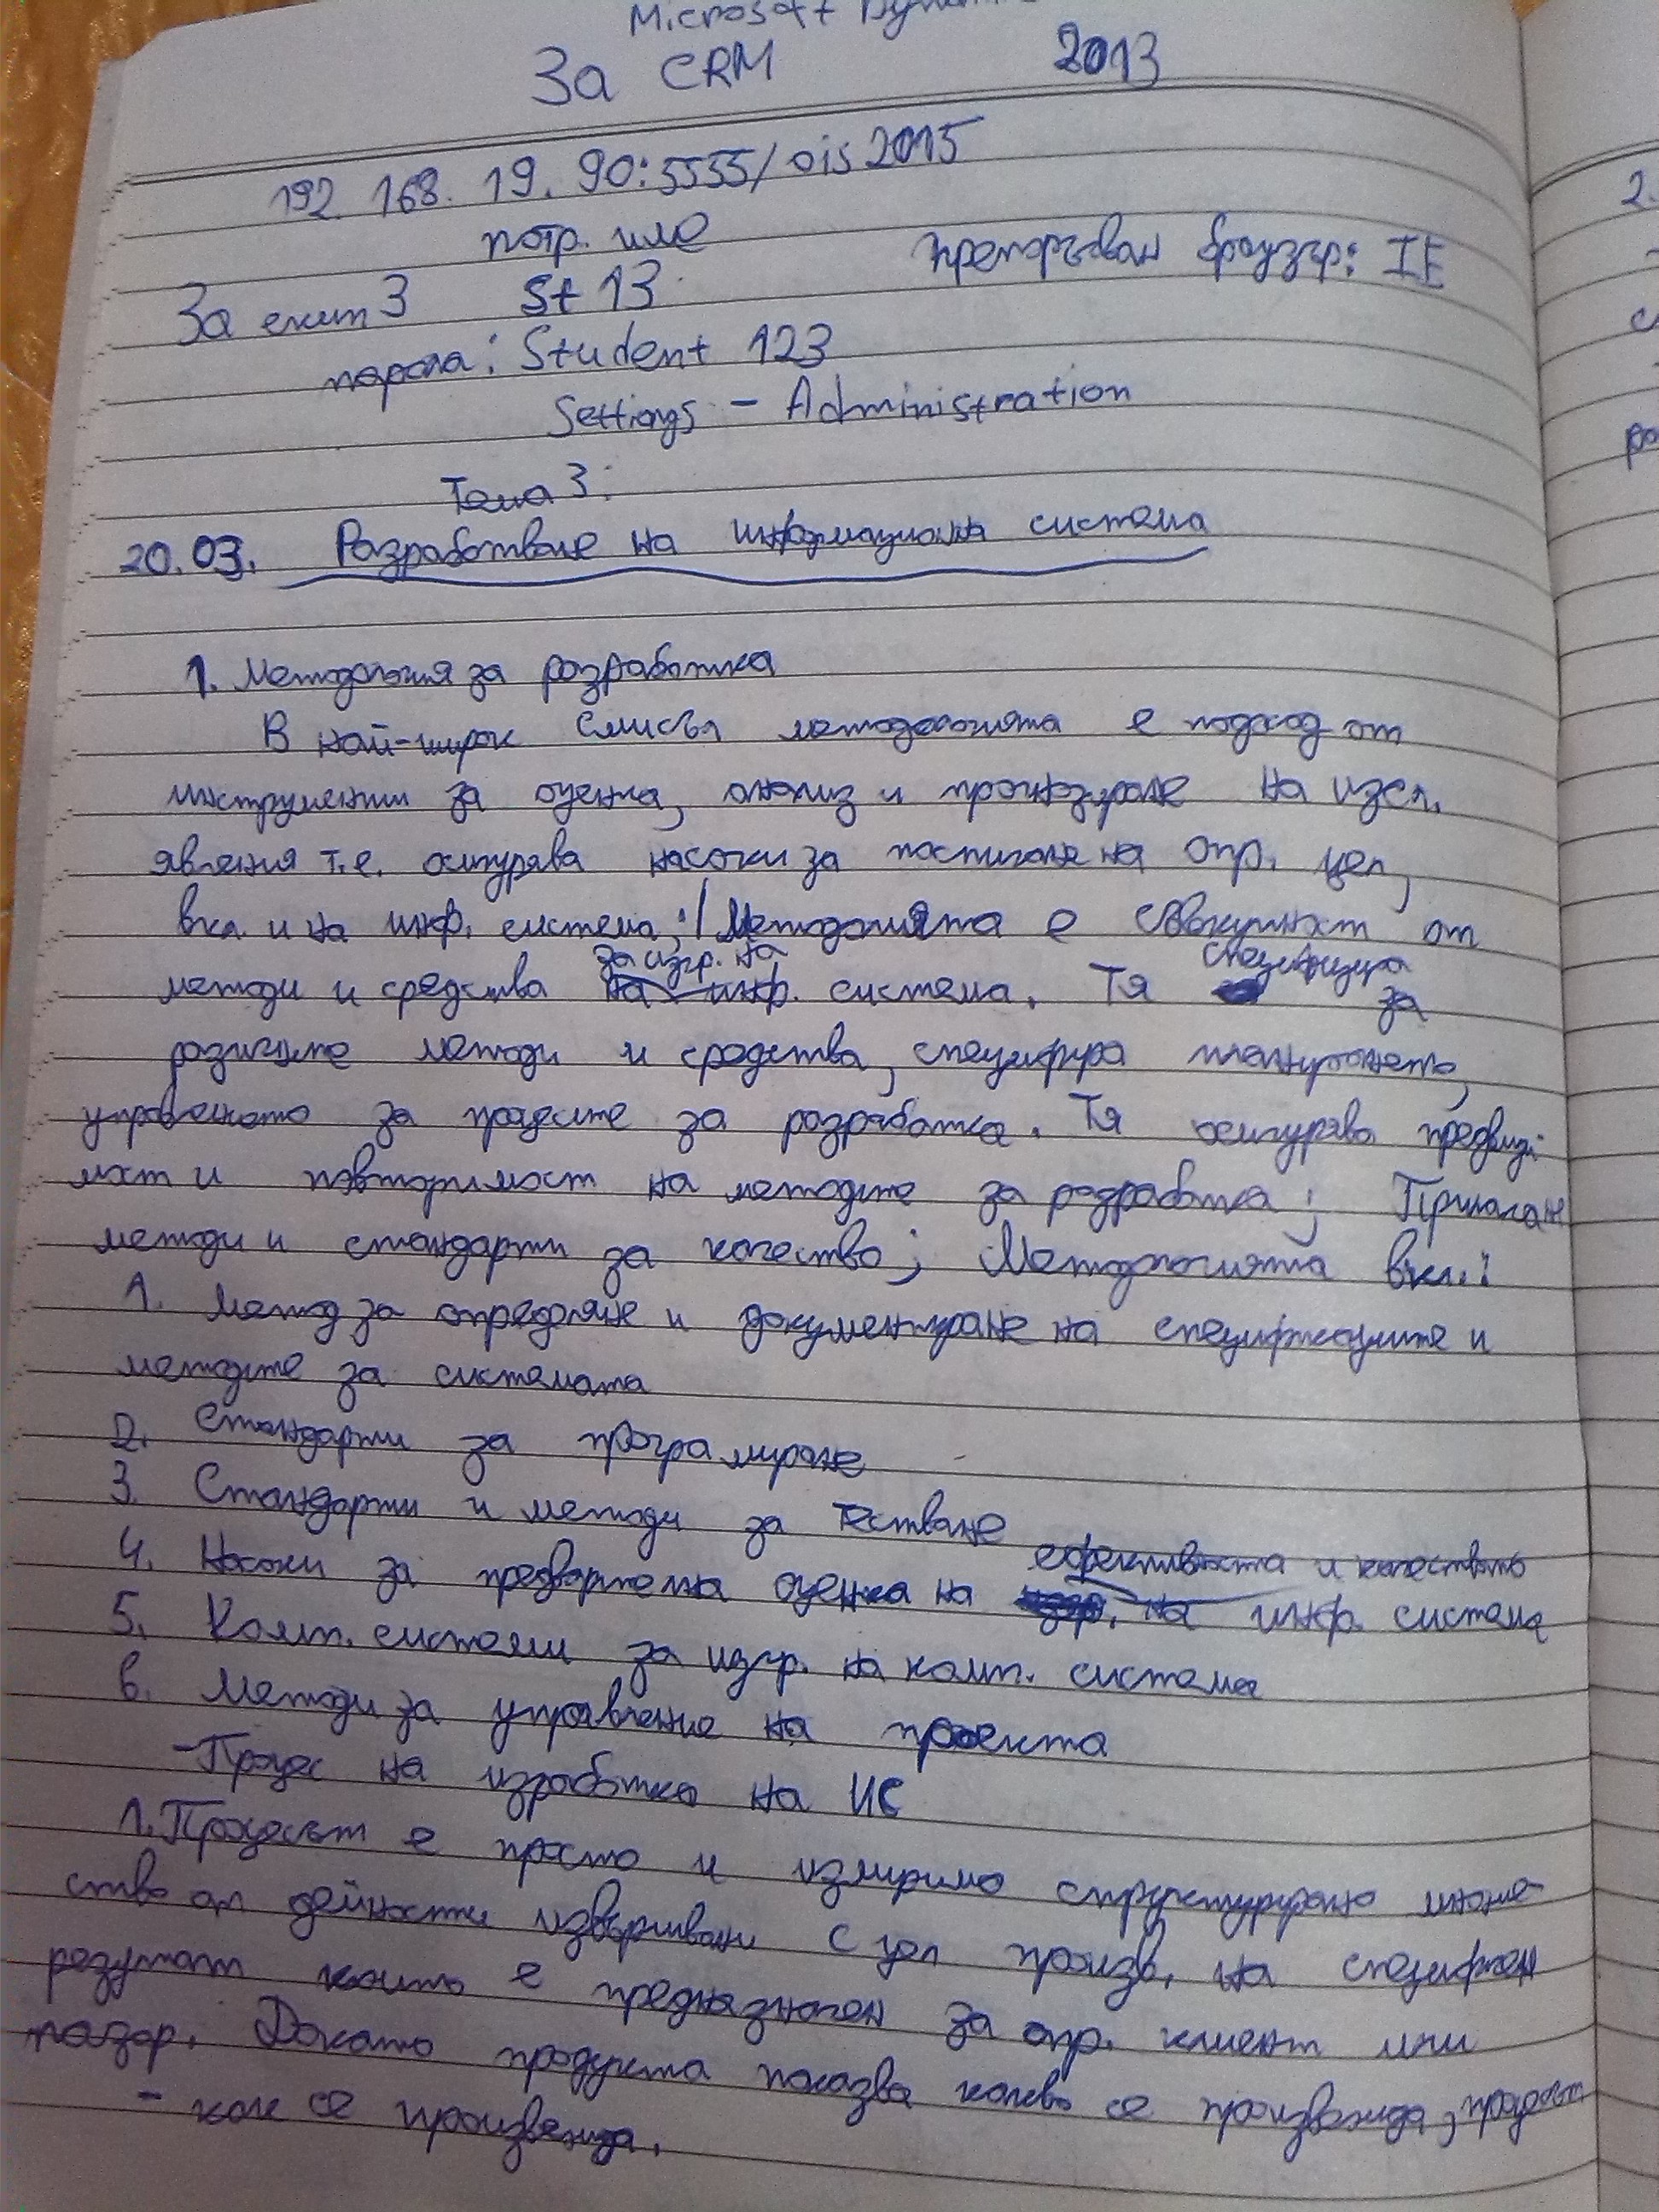 Microsoft Dynam
За CRM 2013
192.168.19.90:5555/ois2015
потр. име
Препоръчван браузър: IE
За екип 3 St 13
парола: Student 123
Settings – Administration
Тема 3:
20.03. Разработване на информационна система
1. Методология за разработка
В най-широк смисъл методологията е подход от
инструменти за оценка, анализ и прогнозиране на изсл.
явления т.е. осигурява насоки за постигане на опр. цел,
вкл. и на инф. система; Методологията е съвкупност от
за изгр. на специфицира
методи и средства на инф. система. Тя за
различните методи и средства, специфицира планирането,
управлението за процесите за разработка. Тя осигурява предвиди
мост и повторимост на методите за разработка; Прилагане
методи и стандарти за качество; Методологията вкл.:
1. Метод за определяне и документиране на спецификациите и
методите за системата
2. Стандарти за програмиране
3. Стандарти и методи за тестване
ефективността и качеството
4. Насоки за предварителна оценка на на инф. система
5. Комп. системи за изгр. на комп. система
6. Методи за управление на проекта
- Процес на изработка на ИС
1. Процесът е просто и измеримо структурирано множе-
ство от дейности извършвани с цел произв. на специфичен
резултат който е предназначен за опр. клиент или
пазар. Докато продукта показва какво се произвежда, процесът
- как се произвежда.
2.